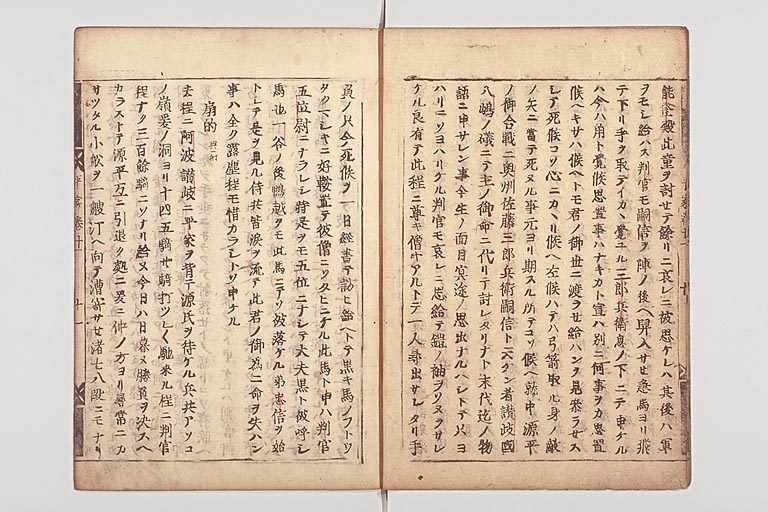 能登殿此童ヲ討セテ餘リニ哀レニ被思ケレハ其後ハ軍
ヲモシ給ハス判官モ嗣信ヲ陣ノ後ヘ舁入サセ急馬ヨリ飛
テ下リ手ヲ取テイカヽ覺ユル三郎兵衛息ノ下ニテ申ケル
ハ今ハ角ト覺候思置事ハナキカト宣ハ別ニ何事ヲカ思置
候ヘキサハ候ヘトモ君ノ御世ニ渡ラセ給ハンヲ見参ラセス
シテ死候コソ心ニカヽリ候ヘ左候ハテハ弓箭取ル身ノ敵
ノ矢ニ當テ死ヌル事元ヨリ期スル所テコソ候ヘ就中源平
ノ御合戰ニ奥州佐藤三郎兵衛嗣信ト云ケン者讃岐國
八嶋ノ礒ニテ主ノ御命ニ代リテ討レタリナト末代迄ノ物
語ニ申サレン事今生ノ面目冥途ノ思出ナルヘシトテ只ヨ
ハリニソヨハリケル判官モ哀レニ思給テ鎧ノ袖ヲソヌラサレ
ケル良有テ此程ニ尊キ僧ヤアルトテ一人尋出サレタリ手
負ノ只今死候ヲ一日經書テ訪ヒ給ヘトテ黒キ馬ノフトウ
タクマシキニ好鞍置テ彼僧ニソタヒニケル此馬ト申ハ判官
五位尉ニナラレシ時是ヲモ五位ニナシテ大夫黒ト被呼シ
馬也一谷ノ後鵯越ヲモ此馬ニテソ被落ケル弟忠信ヲ始
トシテ是ヲ見ル侍共皆涙ヲ流テ此君ノ御為ニ命ヲ失ハン
事ハ全ク露塵程モ惜カラシトソ申ケル
扇的
去程ニ阿波讃岐ニ平家ヲ背テ源氏ヲ待ケル兵共アソコ
ノ嶺爰ノ洞ヨリ十四五騎廿騎打ツレ〱馳來ル程ニ判官
程ナク三百餘騎ニソナリ給又今日ハ日暮ヌ勝負ヲ決スヘ
カラストテ源平互ニ引退ク處ニ爰ニ沖ノ方ヨリ尋常ニカ
サツタル小舩ヲ一艘汀ヘ向テ漕寄サセ渚七八段ニモナリ